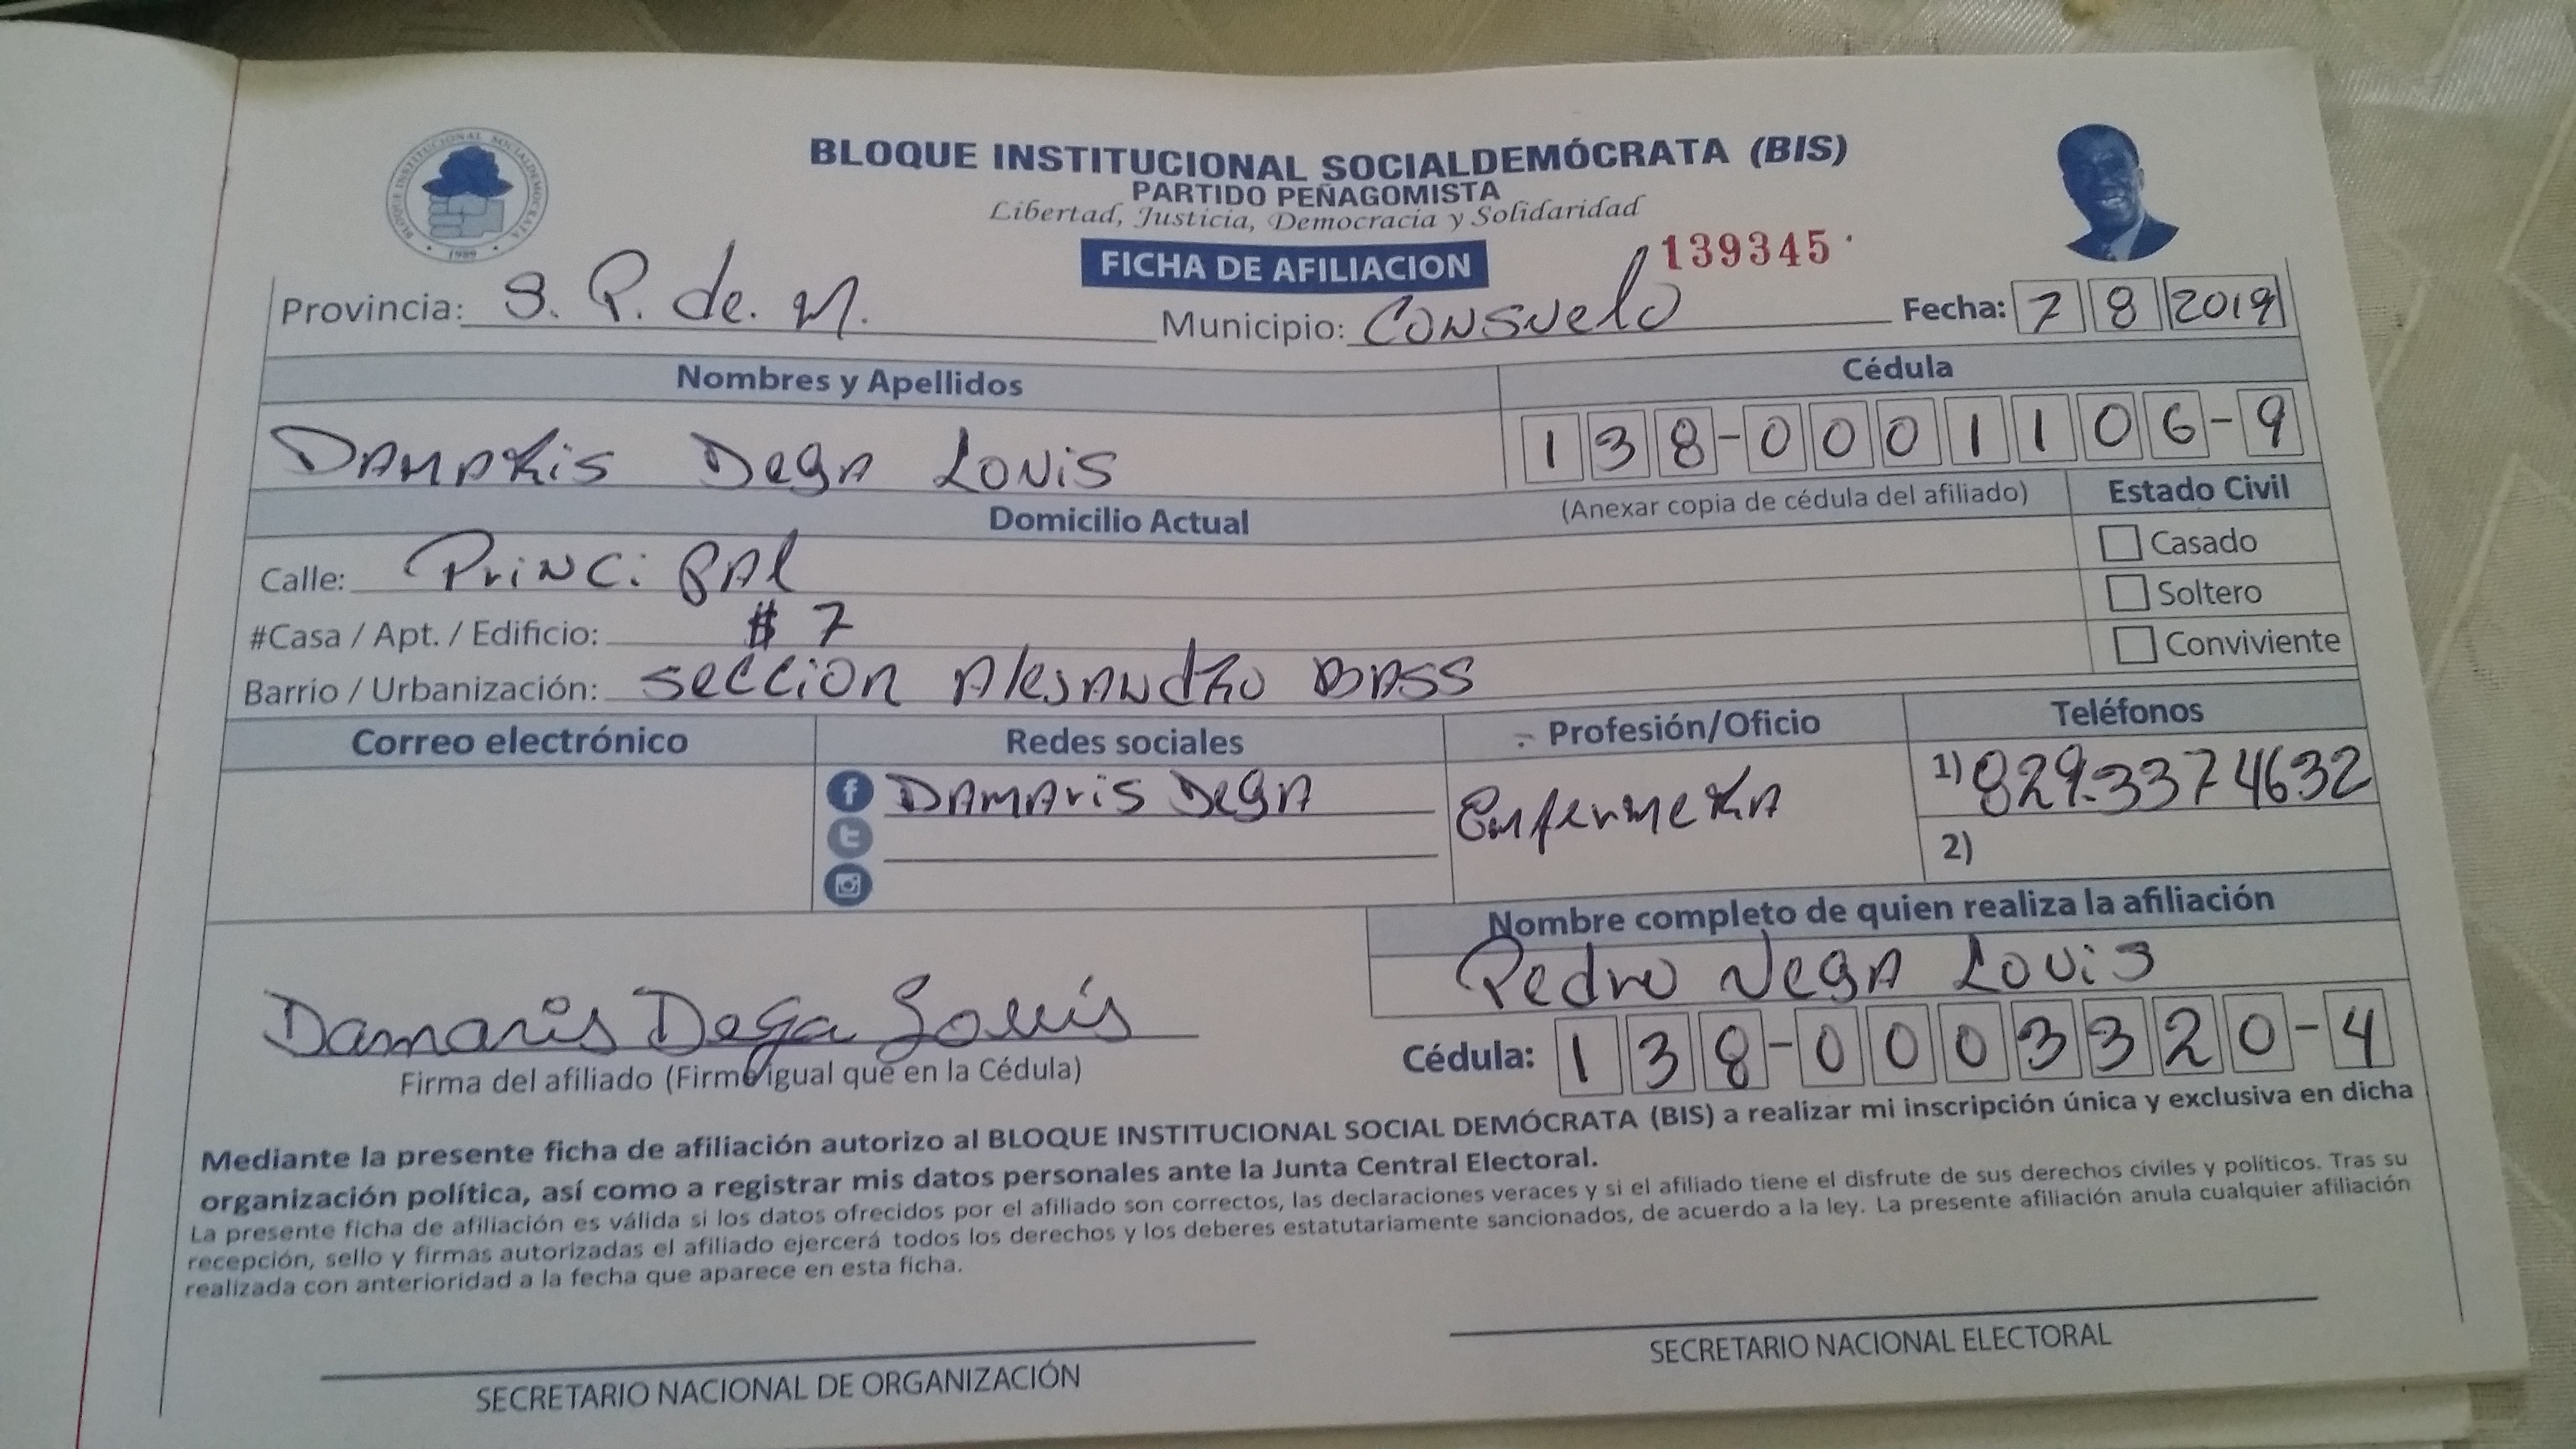 BLOQUE INSTITUCIONAL SOCIALDEMÓCRATA
1989
BLOQUE INSTITUCIONAL SOCIALDEMÓCRATA (BIS)
PARTIDO PEÑAGOMISTA
Libertad, Justicia, Democracia y Solidaridad
FICHA DE AFILIACION
139345
Provincia: S. P. de. M. Municipio: Consuelo Fecha: 7 8 2019
Nombres y Apellidos Cédula
DAMARis DegA Louis 138-0001106-9
(Anexar copia de cédula del afiliado) Estado Civil
Domicilio Actual
Calle: PriNciPAl Casado
#Casa / Apt. / Edificio: # 7 Soltero
Barrio / Urbanización: seccion AlejANdro BASS Conviviente
Correo electrónico Redes sociales Profesión/Oficio Teléfonos
DAMAris DegA EnfermeRA 1) 829.3374632
2)
Nombre completo de quien realiza la afiliación
Pedro DegA Louis
Damaris Dega Louis
Firma del afiliado (Firme igual que en la Cédula) Cédula: 138-0003320-4
Mediante la presente ficha de afiliación autorizo al BLOQUE INSTITUCIONAL SOCIAL DEMÓCRATA (BIS) a realizar mi inscripción única y exclusiva en dicha
organización política, así como a registrar mis datos personales ante la Junta Central Electoral.
La presente ficha de afiliación es válida si los datos ofrecidos por el afiliado son correctos, las declaraciones veraces y si el afiliado tiene el disfrute de sus derechos civiles y políticos. Tras su
recepción, sello y firmas autorizadas el afiliado ejercerá todos los derechos y los deberes estatutariamente sancionados, de acuerdo a la ley. La presente afiliación anula cualquier afiliación
realizada con anterioridad a la fecha que aparece en esta ficha.
SECRETARIO NACIONAL DE ORGANIZACIÓN SECRETARIO NACIONAL ELECTORAL